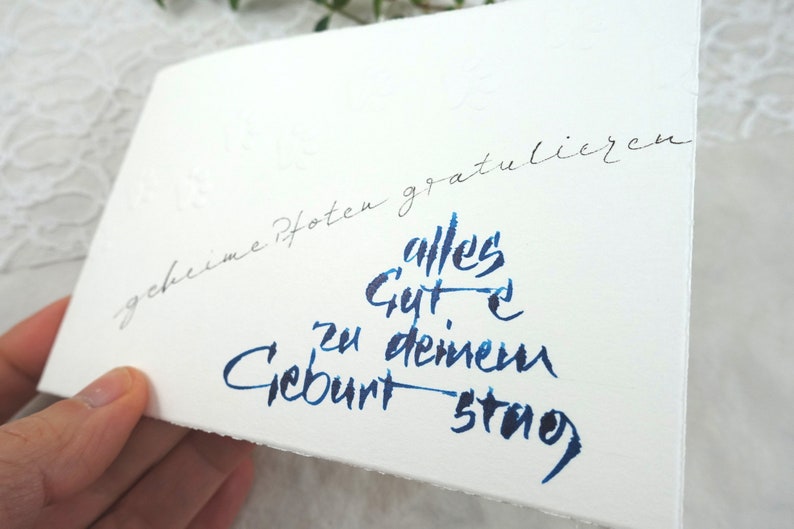 geheime Pfoten gratulieren
alles
Gute
zu deinem
Geburtstag